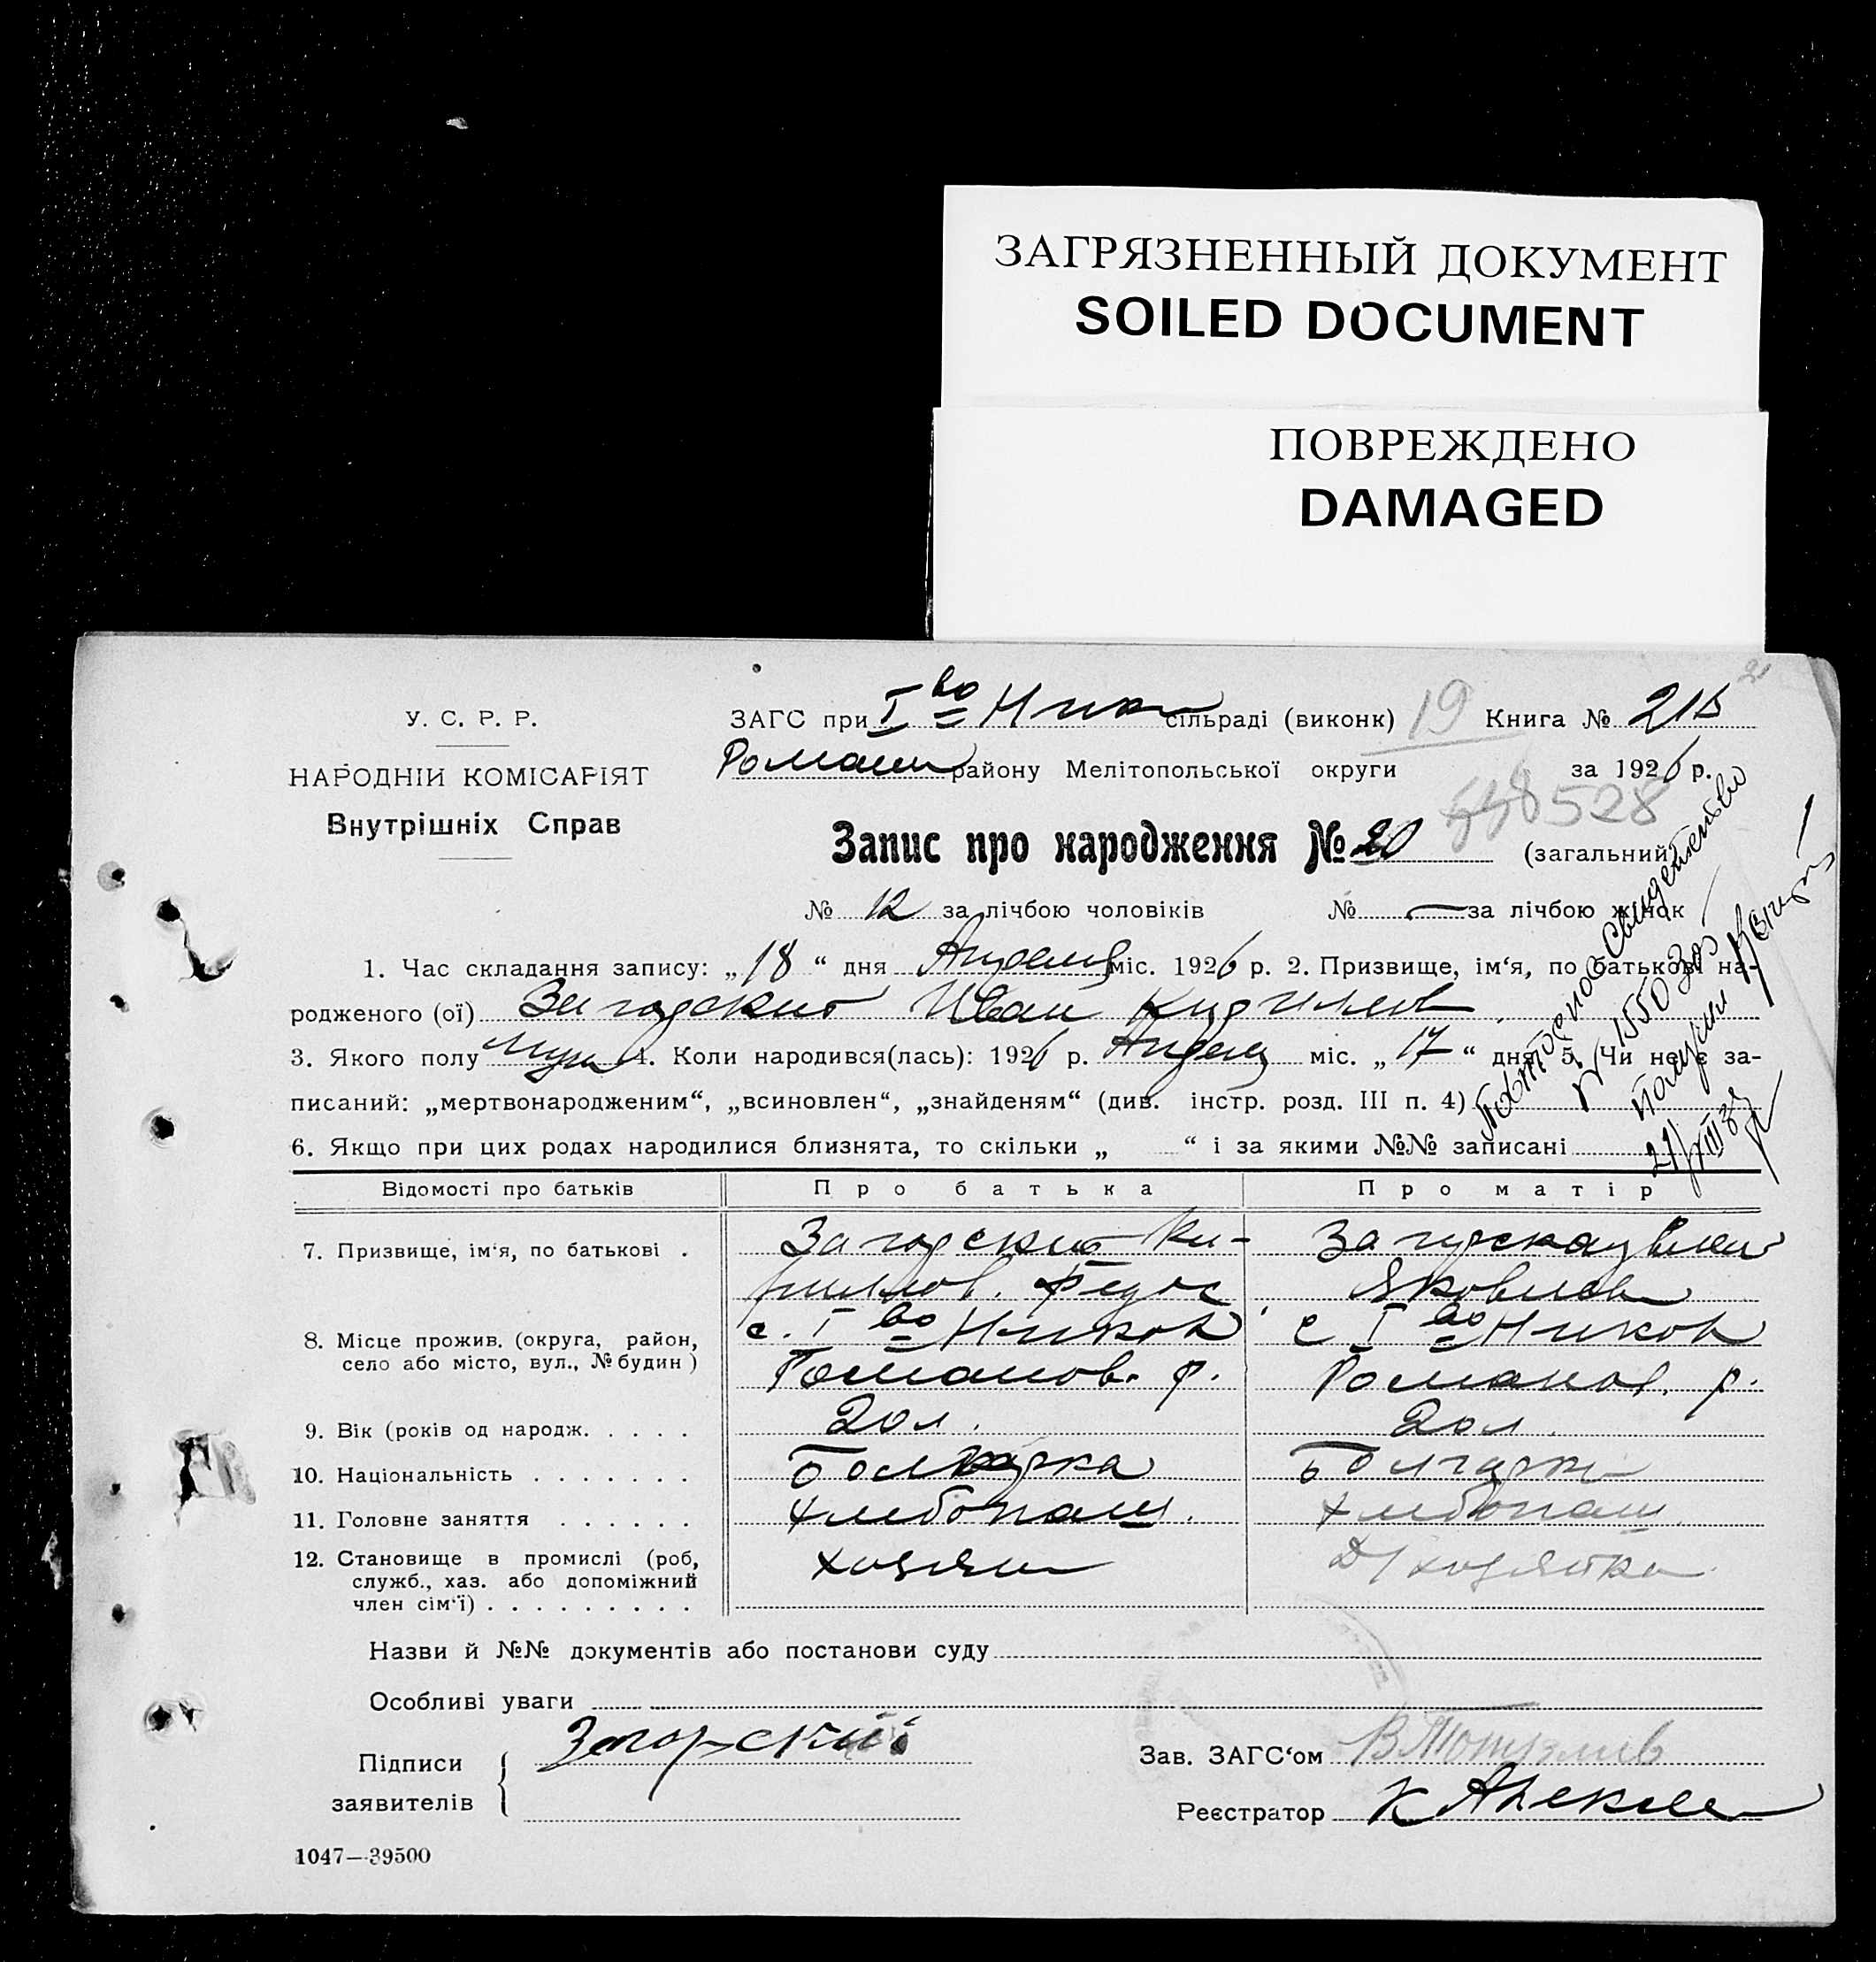 ЗАГРЯЗНЕННЫЙ ДОКУМЕНТ
SOILED DOCUMENT
ПОВРЕЖДЕНО
DAMAGED
У. С. Р. Р.
НАРОДНІЙ КОМІСАРІЯТ
Внутрішніх Справ
ЗАГС при I во Ник сільраді (виконк) 19 Книга № 21
Роман району Мелітопольської округи за 1926 р.
528
Запис про народження № 20 (загальний)
№ 12 за лічбою чоловіків № — за лічбою жінок
1. Час складання запису: „ 18 “ дня Апреля міс. 1926 р. 2. Призвище, ім‘я, по батькові на-
родженого (ої) Загорский Иван Кирилов
3. Якого полу муж 4. Коли народився(лась): 1926 р. Апрель міс. „ 17 “ дня 5. Чи не є за-
писаний: „мертвонародженим“, „всиновлен“, „знайденям“ (див. інстр. розд. III п. 4)
6. Якщо при цих родах народилися близнята, то скільки „ “ і за якими №№ записані
Повторное свидетельство
№ 1550303
получил
21/VIII 38
Відомості про батьків Про батька Про матір
7. Призвище, ім‘я, по батькові . Загорский Ки- Загорская
риллов. Федос Яковлев
8. Місце прожив. (округа, район, село або місто, вул., № будин) с. I во Никол с I во Никол
Романов. р. Романов. р.
9. Вік (років од народж. . . . . 20 л. 20 л.
10. Національність . . . . . . . Болгарка Болгарка
11. Головне заняття . . . . . . Хлебопаш. Хлебопаш.
12. Становище в промислі (роб, служб., хаз. або допоміжний член сім‘ї) . . . . . . . . . хозяин Д/хозяйка
Назви й №№ документів або постанови суду
Особливі уваги
Підписи заявителів Загорский
Зав. ЗАГС‘ом
Реєстратор К Алексеев
1047—39500